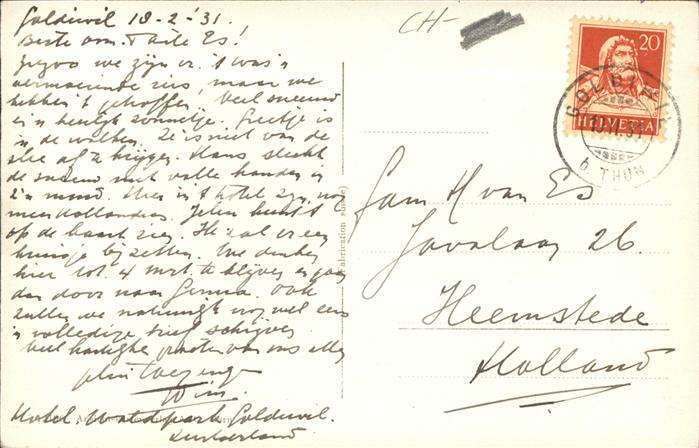 Goldiwil 18-2-'31.
Beste om. Tante Es!
we zijn er. 't was 'n
vermoeiende reis, maar we
hebben 't getroffen. Veel sneeuw
en 'n heerlijk zonnetje. Greetje is
in de wolken. Ze is niet van de
slee af te krijgen. Hans slecht
de sneeuw met volle handen in
z'n mond. Hier in 't hotel zijn nog
meer Hollanders. Jelui kunt 't
op de kaart zien. Ik zal er een
kruisje bij zetten. We denken
hier tot 4 mrt te blijven en gaan
dan door naar Genua. Ook
zullen we natuurlijk nog wel eens
'n volledige brief schrijven
Veel hartelijke groeten van ons allen
Wim.
Hotel Waldpark Goldiwil.
Zwitserland
CH-
20
HELVETIA
GOLDIWIL
b. THUN
Fam H van Es
Javalaan 26
Heemstede
Holland